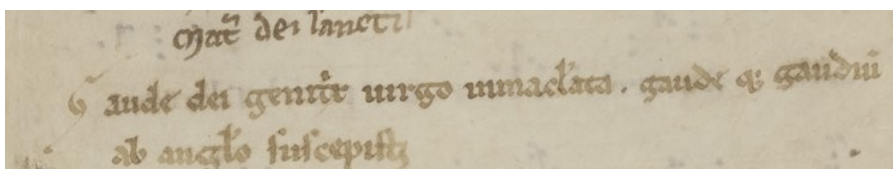 Mat̄ dei sancti
Gaude dei genit͛x uirgo inmacl̄ata . gaude q; gaudiū
ab angl̄o suscepistꝫ